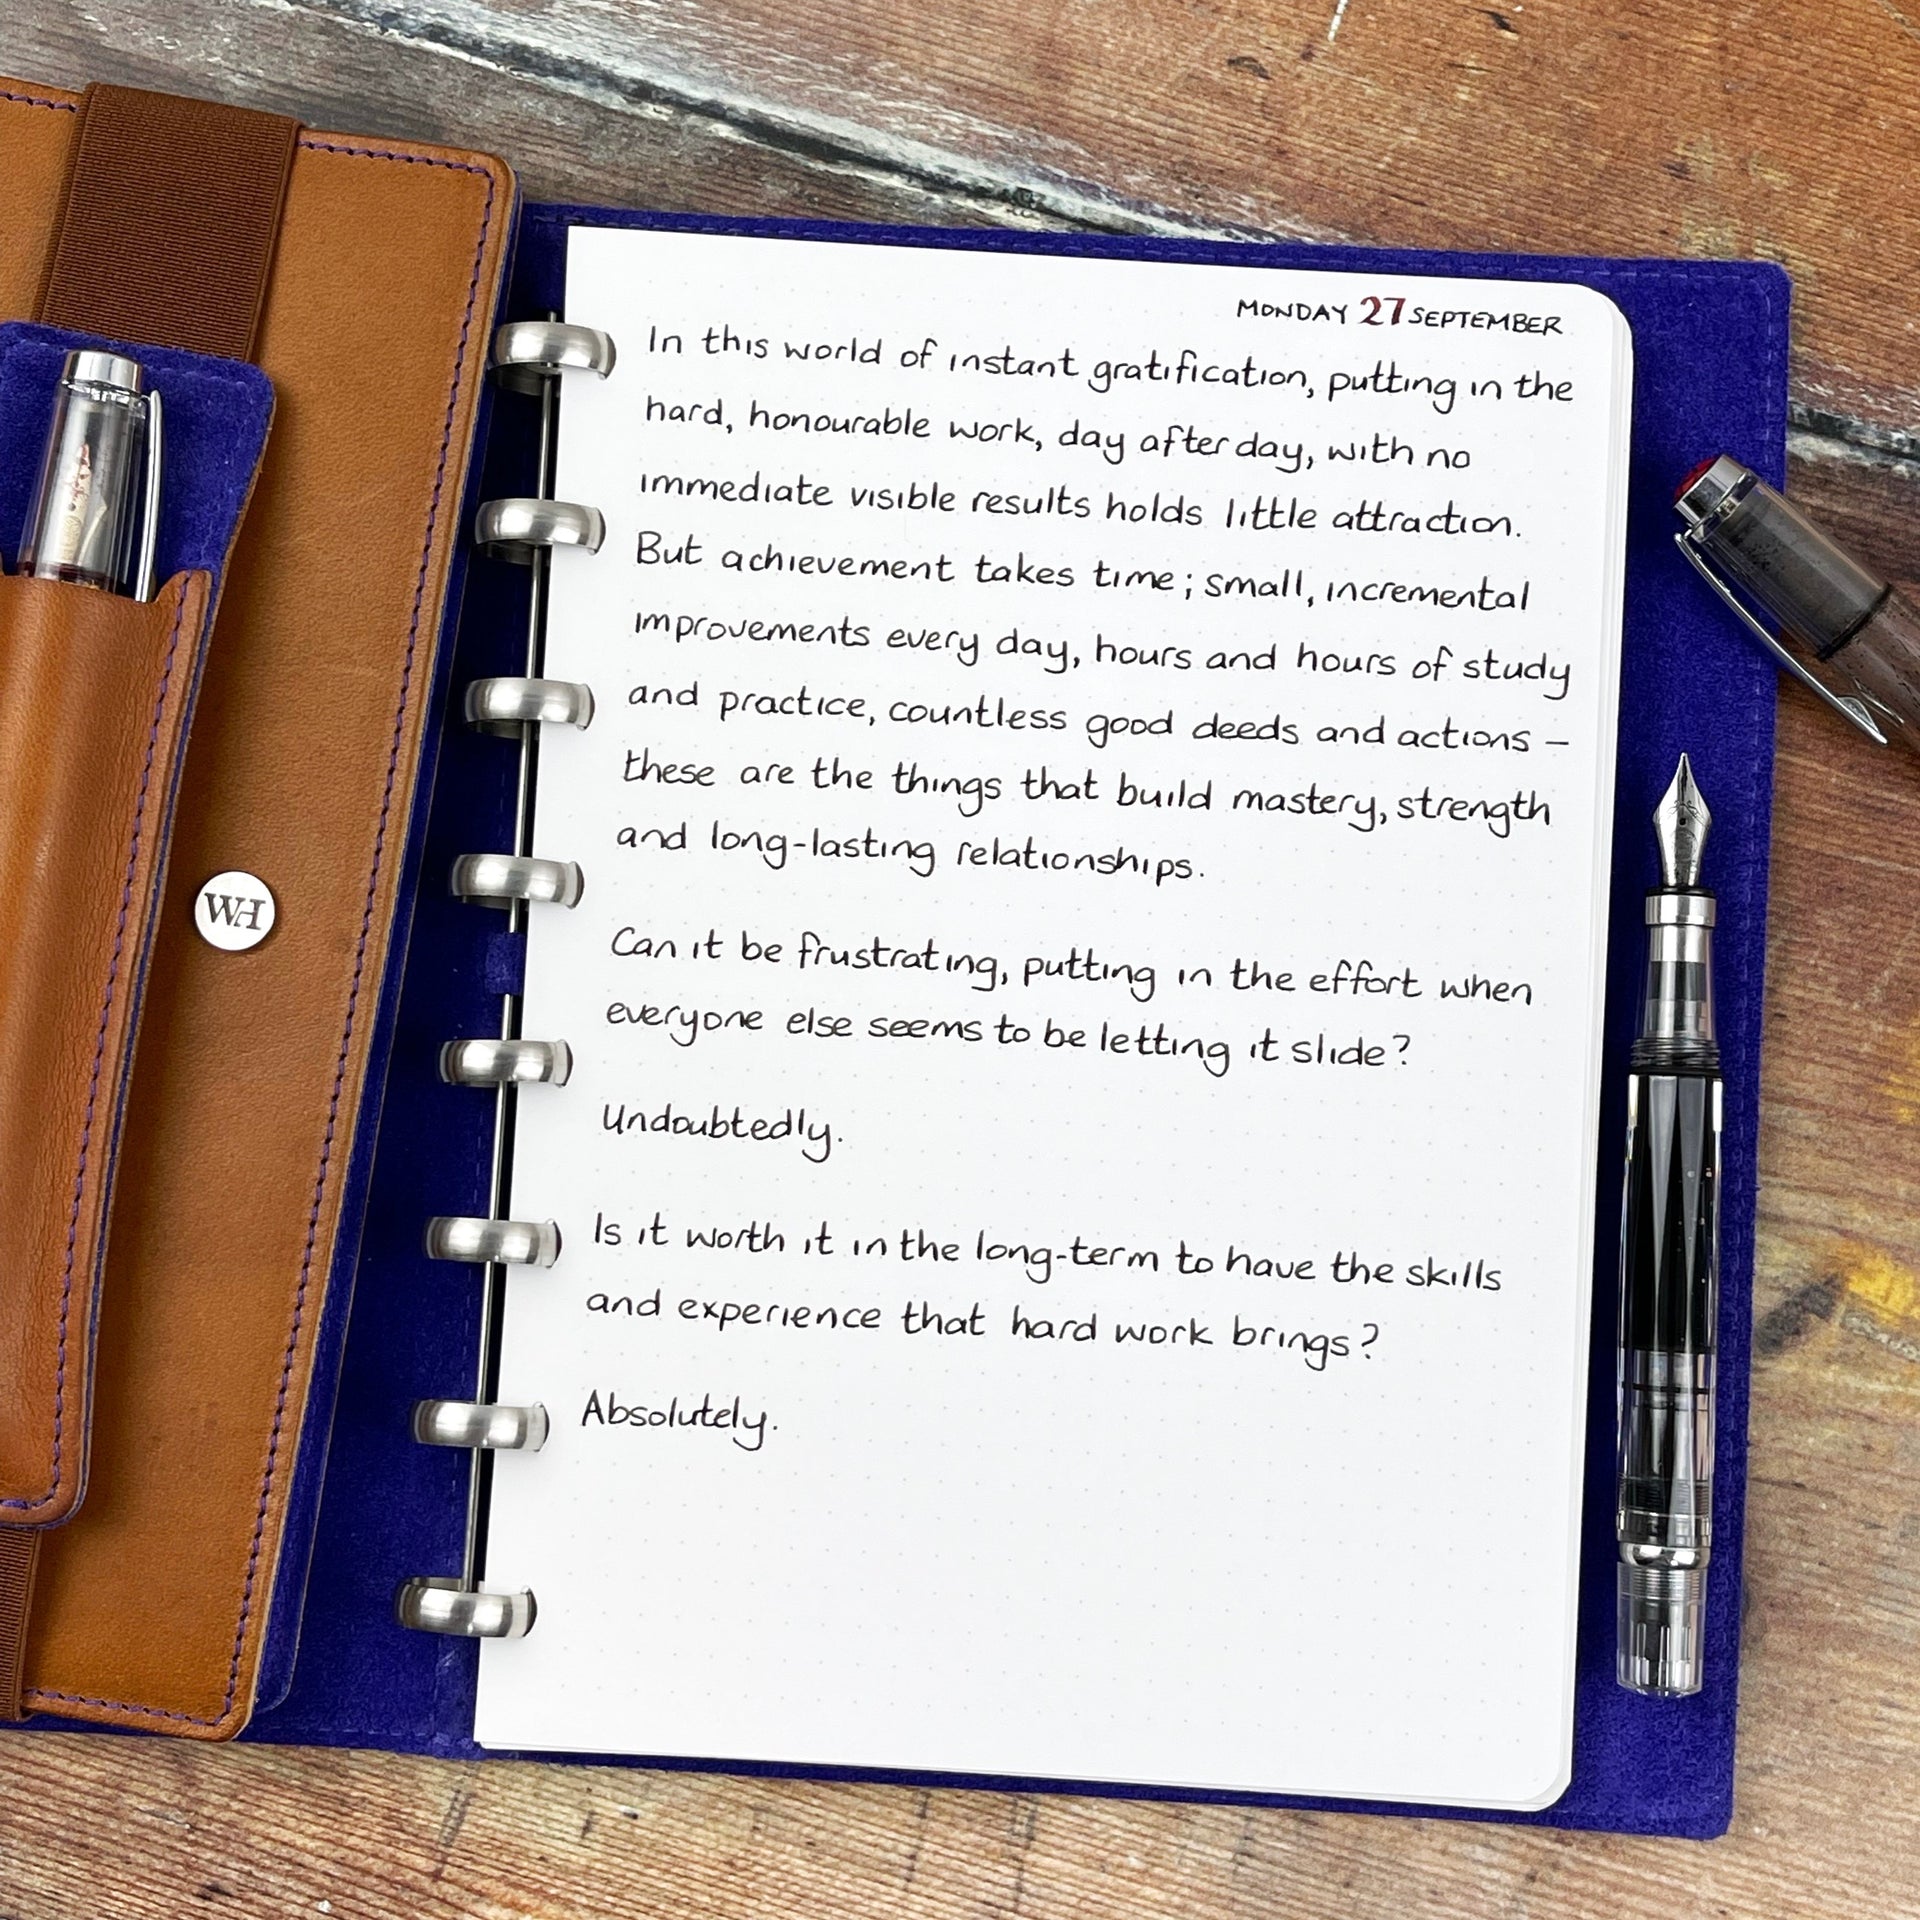 MONDAY 27 SEPTEMBER
In this world of instant gratification, putting in the
hard, honourable work, day after day, with no
immediate visible results holds little attraction.
But achievement takes time; small, incremental
improvements every day, hours and hours of study
and practice, countless good deeds and actions –
these are the things that build mastery, strength
and long-lasting relationships.
Can it be frustrating, putting in the effort when
everyone else seems to be letting it slide?
Undoubtedly.
Is it worth it in the long-term to have the skills
and experience that hard work brings?
Absolutely.
WH